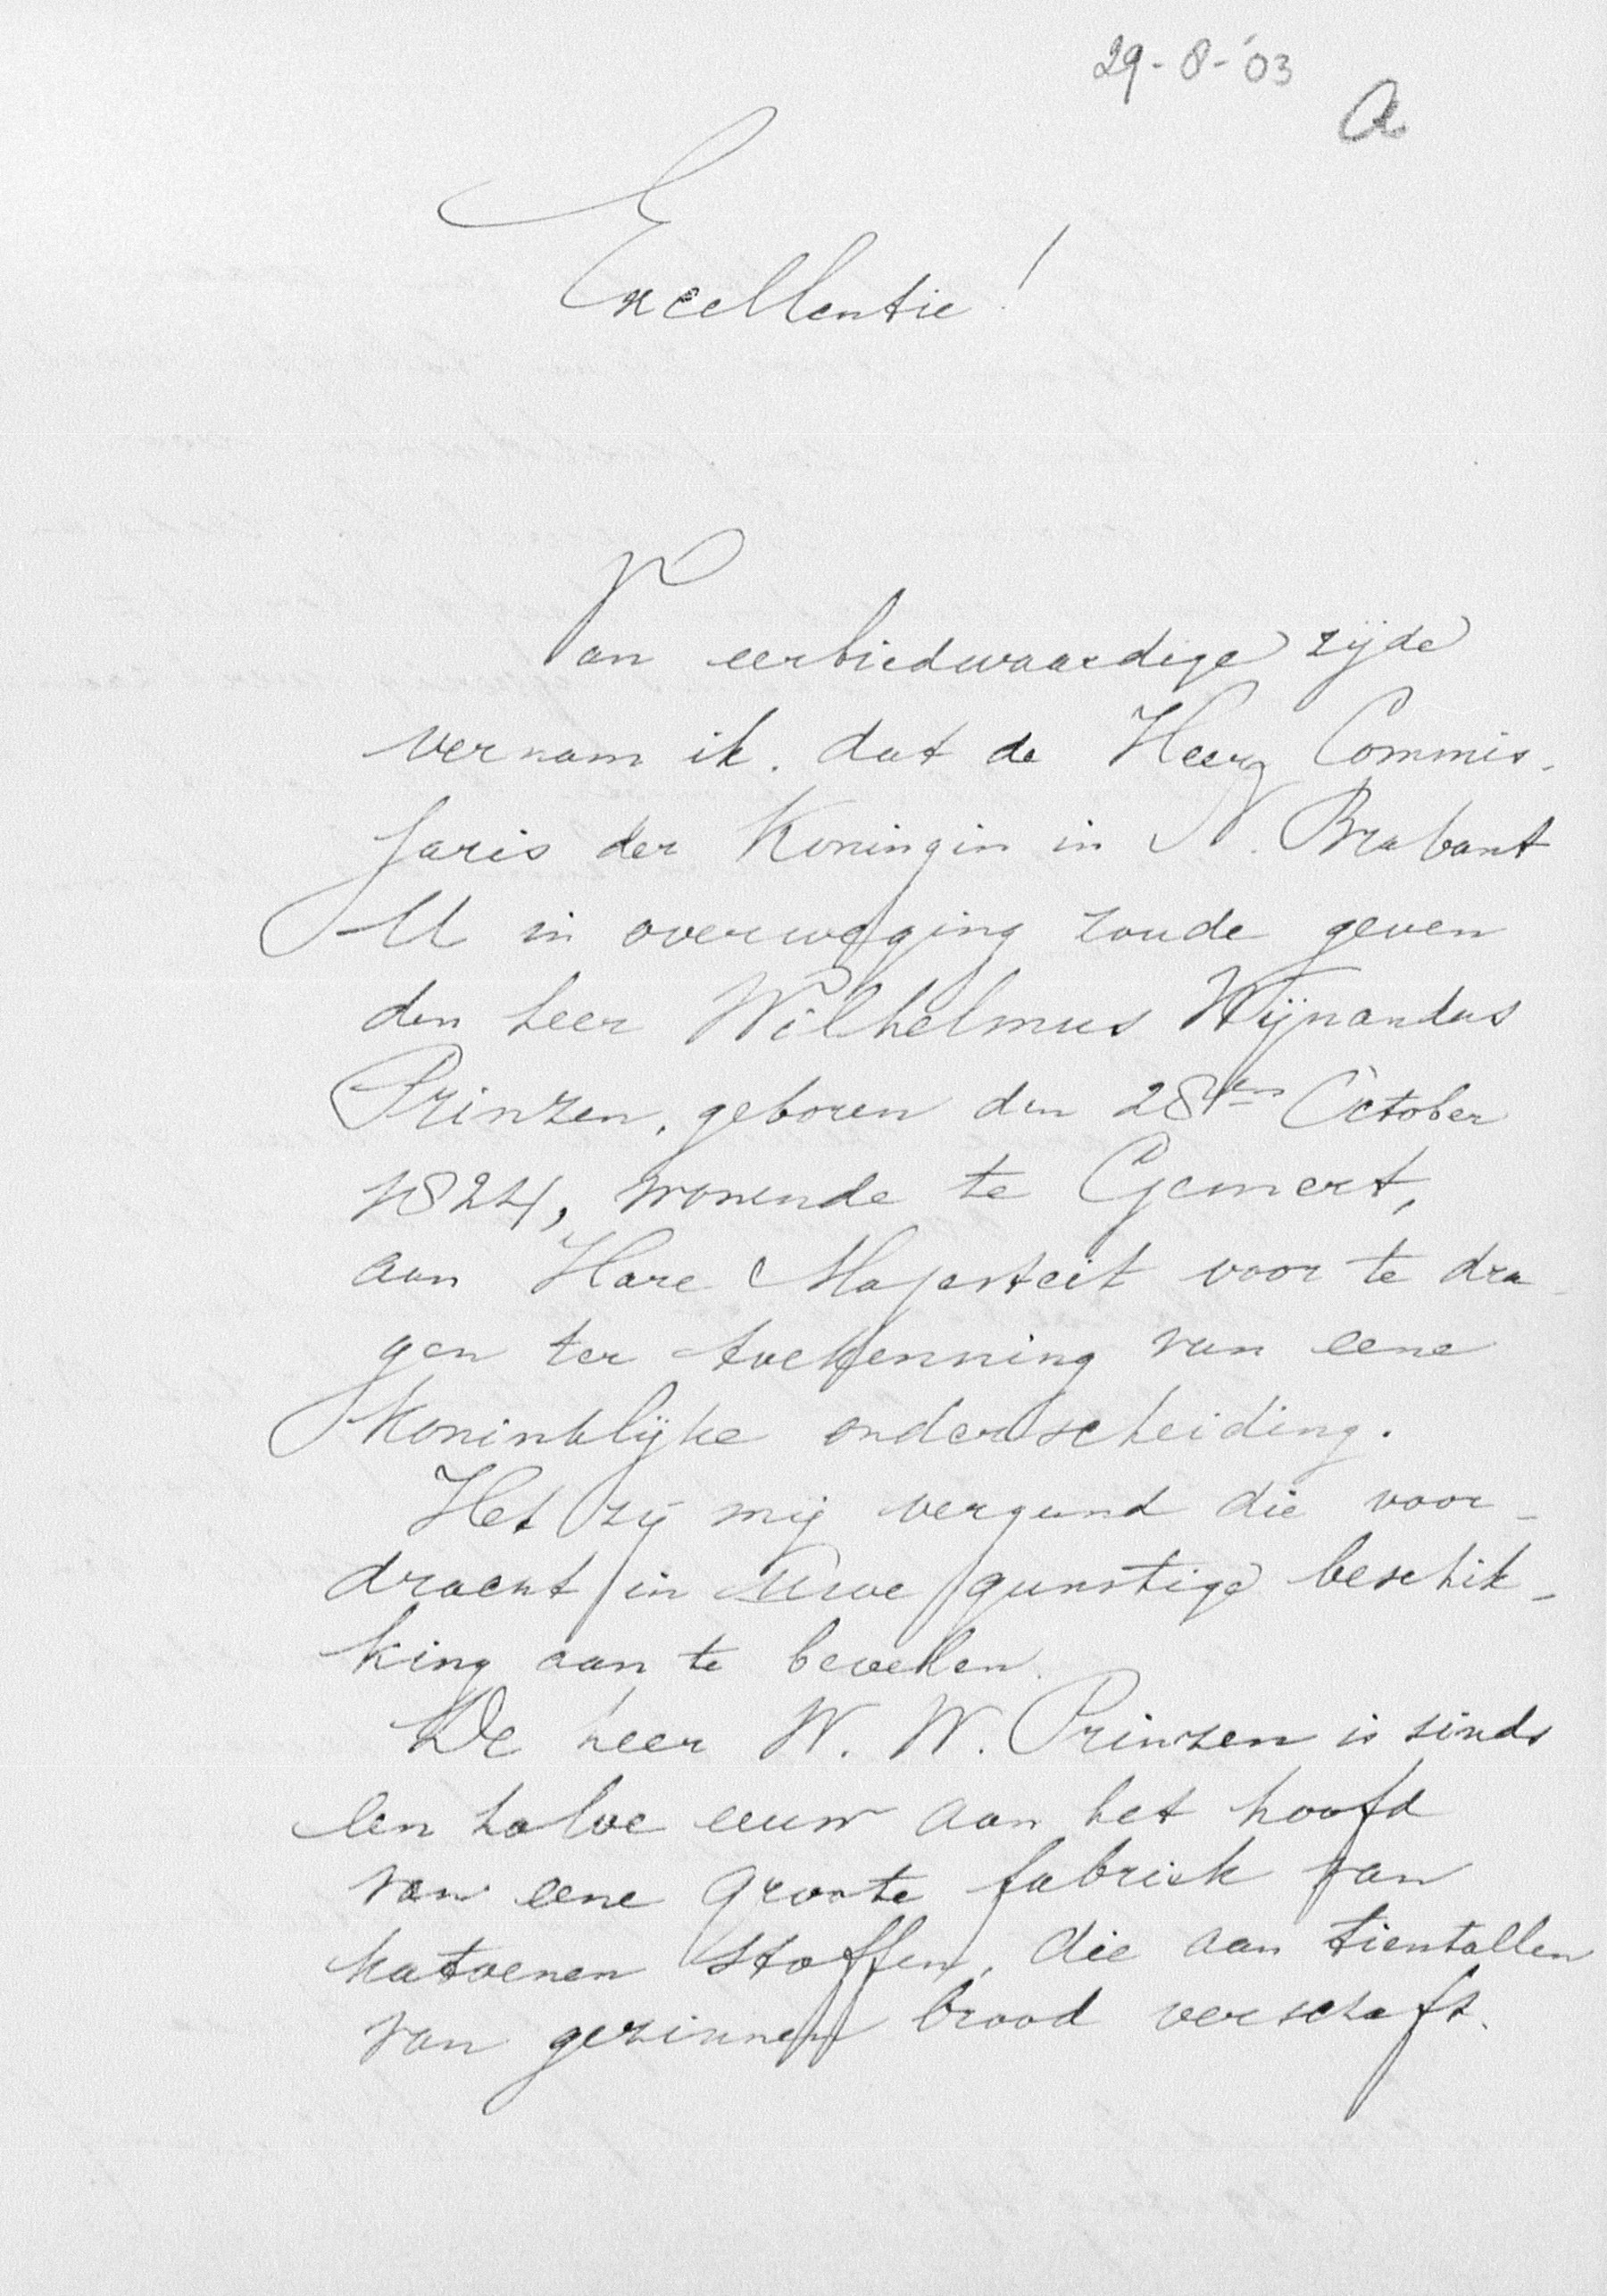 29-8-'03
a
Excellentie!
Van eerbiedwaardige zijde
vernam ik. dat de Heer Commis-
saris der Koningin in N. Brabant
U in overweging zoude geven
den heer Wilhelmus Wijnandus
Prinzen, geboren den 28sten October
1824, wonende te Gemert,
aan Hare Majesteit voor te dra-
gen ter toekenning van eene
Koninklijke onderscheiding.
Het zij mij vergund die voor-
dracht in Uwe gunstige beschik-
king aan te bevelen.
De heer W. W. Prinzen is sinds
een halve eeuw aan het hoofd
van eene groote fabriek van
katoenen stoffen, die aan tientallen
van gezinnen brood verschaft.